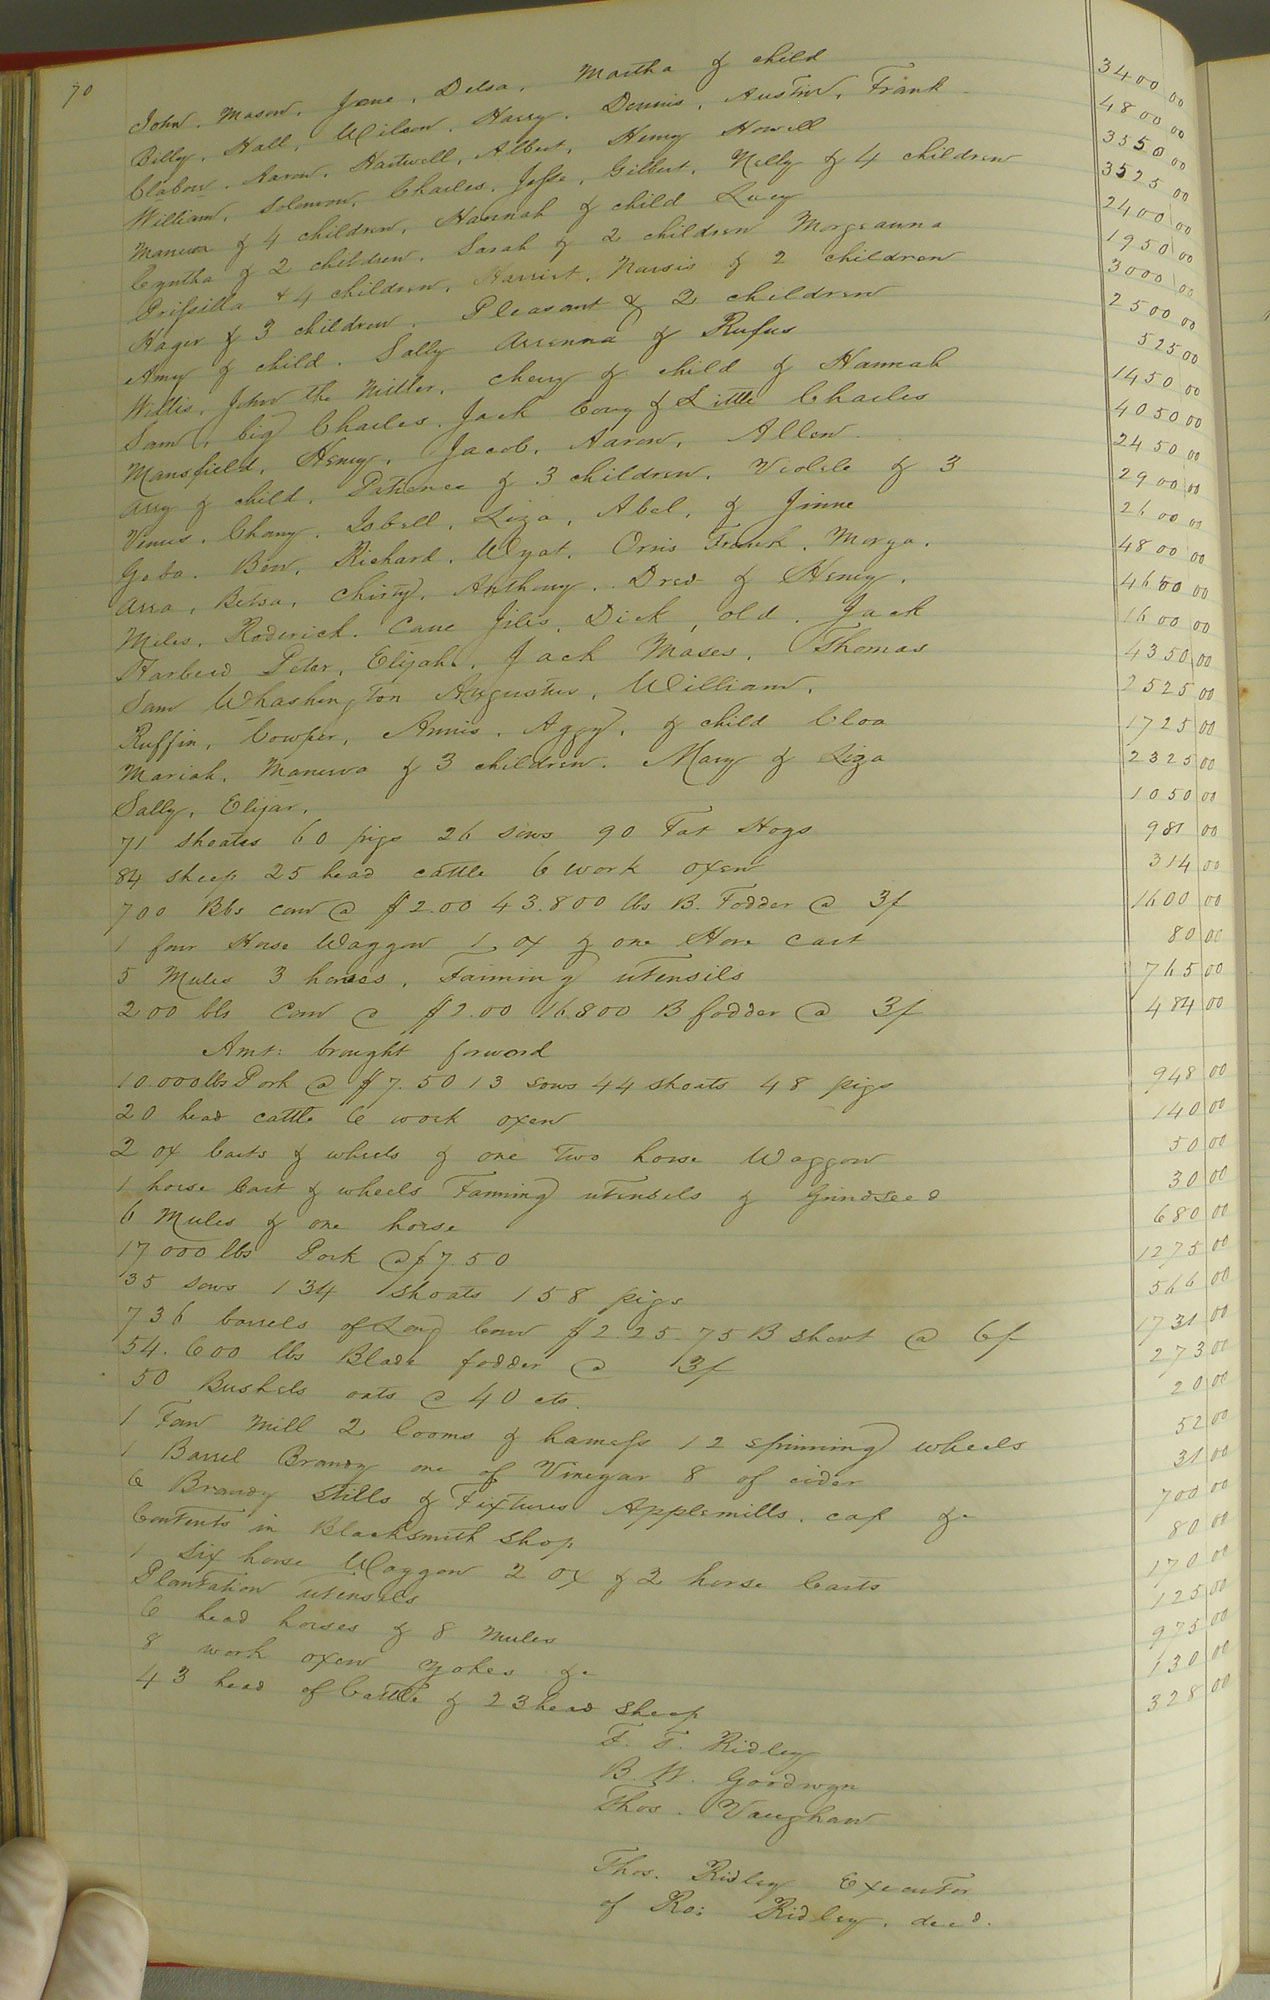 70
John, Mason, Jane, Delsa, Martha & child 3400 00
Billy, Hall, Wilson, Harry, Dennis, Austin, Frank 4800 00
Clabon, Aaron, Hartwell, Albert, Henry Howell 3550 00
William, Solomon, Charles, Jesse, Gilbert, Nelly & 4 children 3525 00
Manerva & 4 children, Hannah & child Lucy 2400 00
Cyntha & 2 children, Sarah & 2 children Morgeanna 1950 00
Prissilla & 4 children, Harriet, Narsis & 2 children 3000 00
Hager & 3 children, Pleasant & 2 children 2500 00
Amy & child, Sally Arrenna & Rufus 525 00
Willis, John the Miller, Chery & child & Hannah 1450 00
Sam, big Charles, Jack Cary & Little Charles 4050 00
Mansfield, Henry, Jacob, Aaron, Allen 2450 00
Arry & child, Patience & 3 children, Violete & 3 2900 00
Venus, Chany, Isbell, Liza, Abel, & Jinne 2600 00
Goda, Ben, Richard, Wyat, Orris Frank, Morga, 4800 00
Arra, Betsa, Christy, Anthony, Drew & Henry, 4600 00
Miles, Roderick, Cane Jiles, Dick, old Jack 1600 00
Harberd Peter, Elijah, Jack Moses, Thomas 4350 00
Sam Whashington Augustus, William, 2525 00
Ruffin, Cowper, Annis, Aggy, & child Cloa 1725 00
Mariah, Manerva & 3 children, Mary & Liza 2325 00
Sally, Elijar, 1050 00
71 sheates 60 pigs 26 sows 90 Fat Hogs 981 00
84 sheep 25 head cattle 6 work oxen 314 00
700 Bbs corn @ $2.00 43.800 lbs B. Fodder @ 3/ 1600 00
1 four Horse Waggon 1 ox & one Hore cart 80 00
5 Mules 3 horses, Farming utensils 765 00
200 bls corn @ $2.00 16.800 B fodder @ 3/ 484 00
Amt: brought forword
10.000 lbs Pork @ $7.50 13 sows 44 shoats 48 pigs 948 00
20 head cattle 6 work oxen 140 00
2 ox Carts & wheels & one two horse Waggon 50 00
1 horse Cart & wheels Farming utensels & Grindseed 30 00
6 Mules & one horse 680 00
17000 lbs Pork @ $7.50 1275 00
35 sows 134 shoats 158 pigs 566 00
736 barrels of Long Corn $2.25. 75 B short @ 6/ 1731 00
54.600 lbs Blade fodder @ 3/ 273 00
50 Bushels oats @ 40 cts. 20 00
1 Fan Mill 2 looms & harness 12 spinning wheels 52 00
1 Barrel Brandy one of Vinegar 8 of cider 31 00
6 Brandy Stills & Fixtures Applemills, cap &c 700 00
Contents in Blacksmith shop 80 00
1 Six horse Waggon 2 ox & 2 horse Carts 170 00
Plantation utensels 125 00
6 head horses & 8 Mules 975 00
8 work oxen Yokes &c 130 00
43 head of Cattle & 23 head sheep 328 00
F. T. Ridley
B. W. Goodwyn
Thos. Vaughan
Thos. Ridley Executor
of Ro: Ridley, decd.